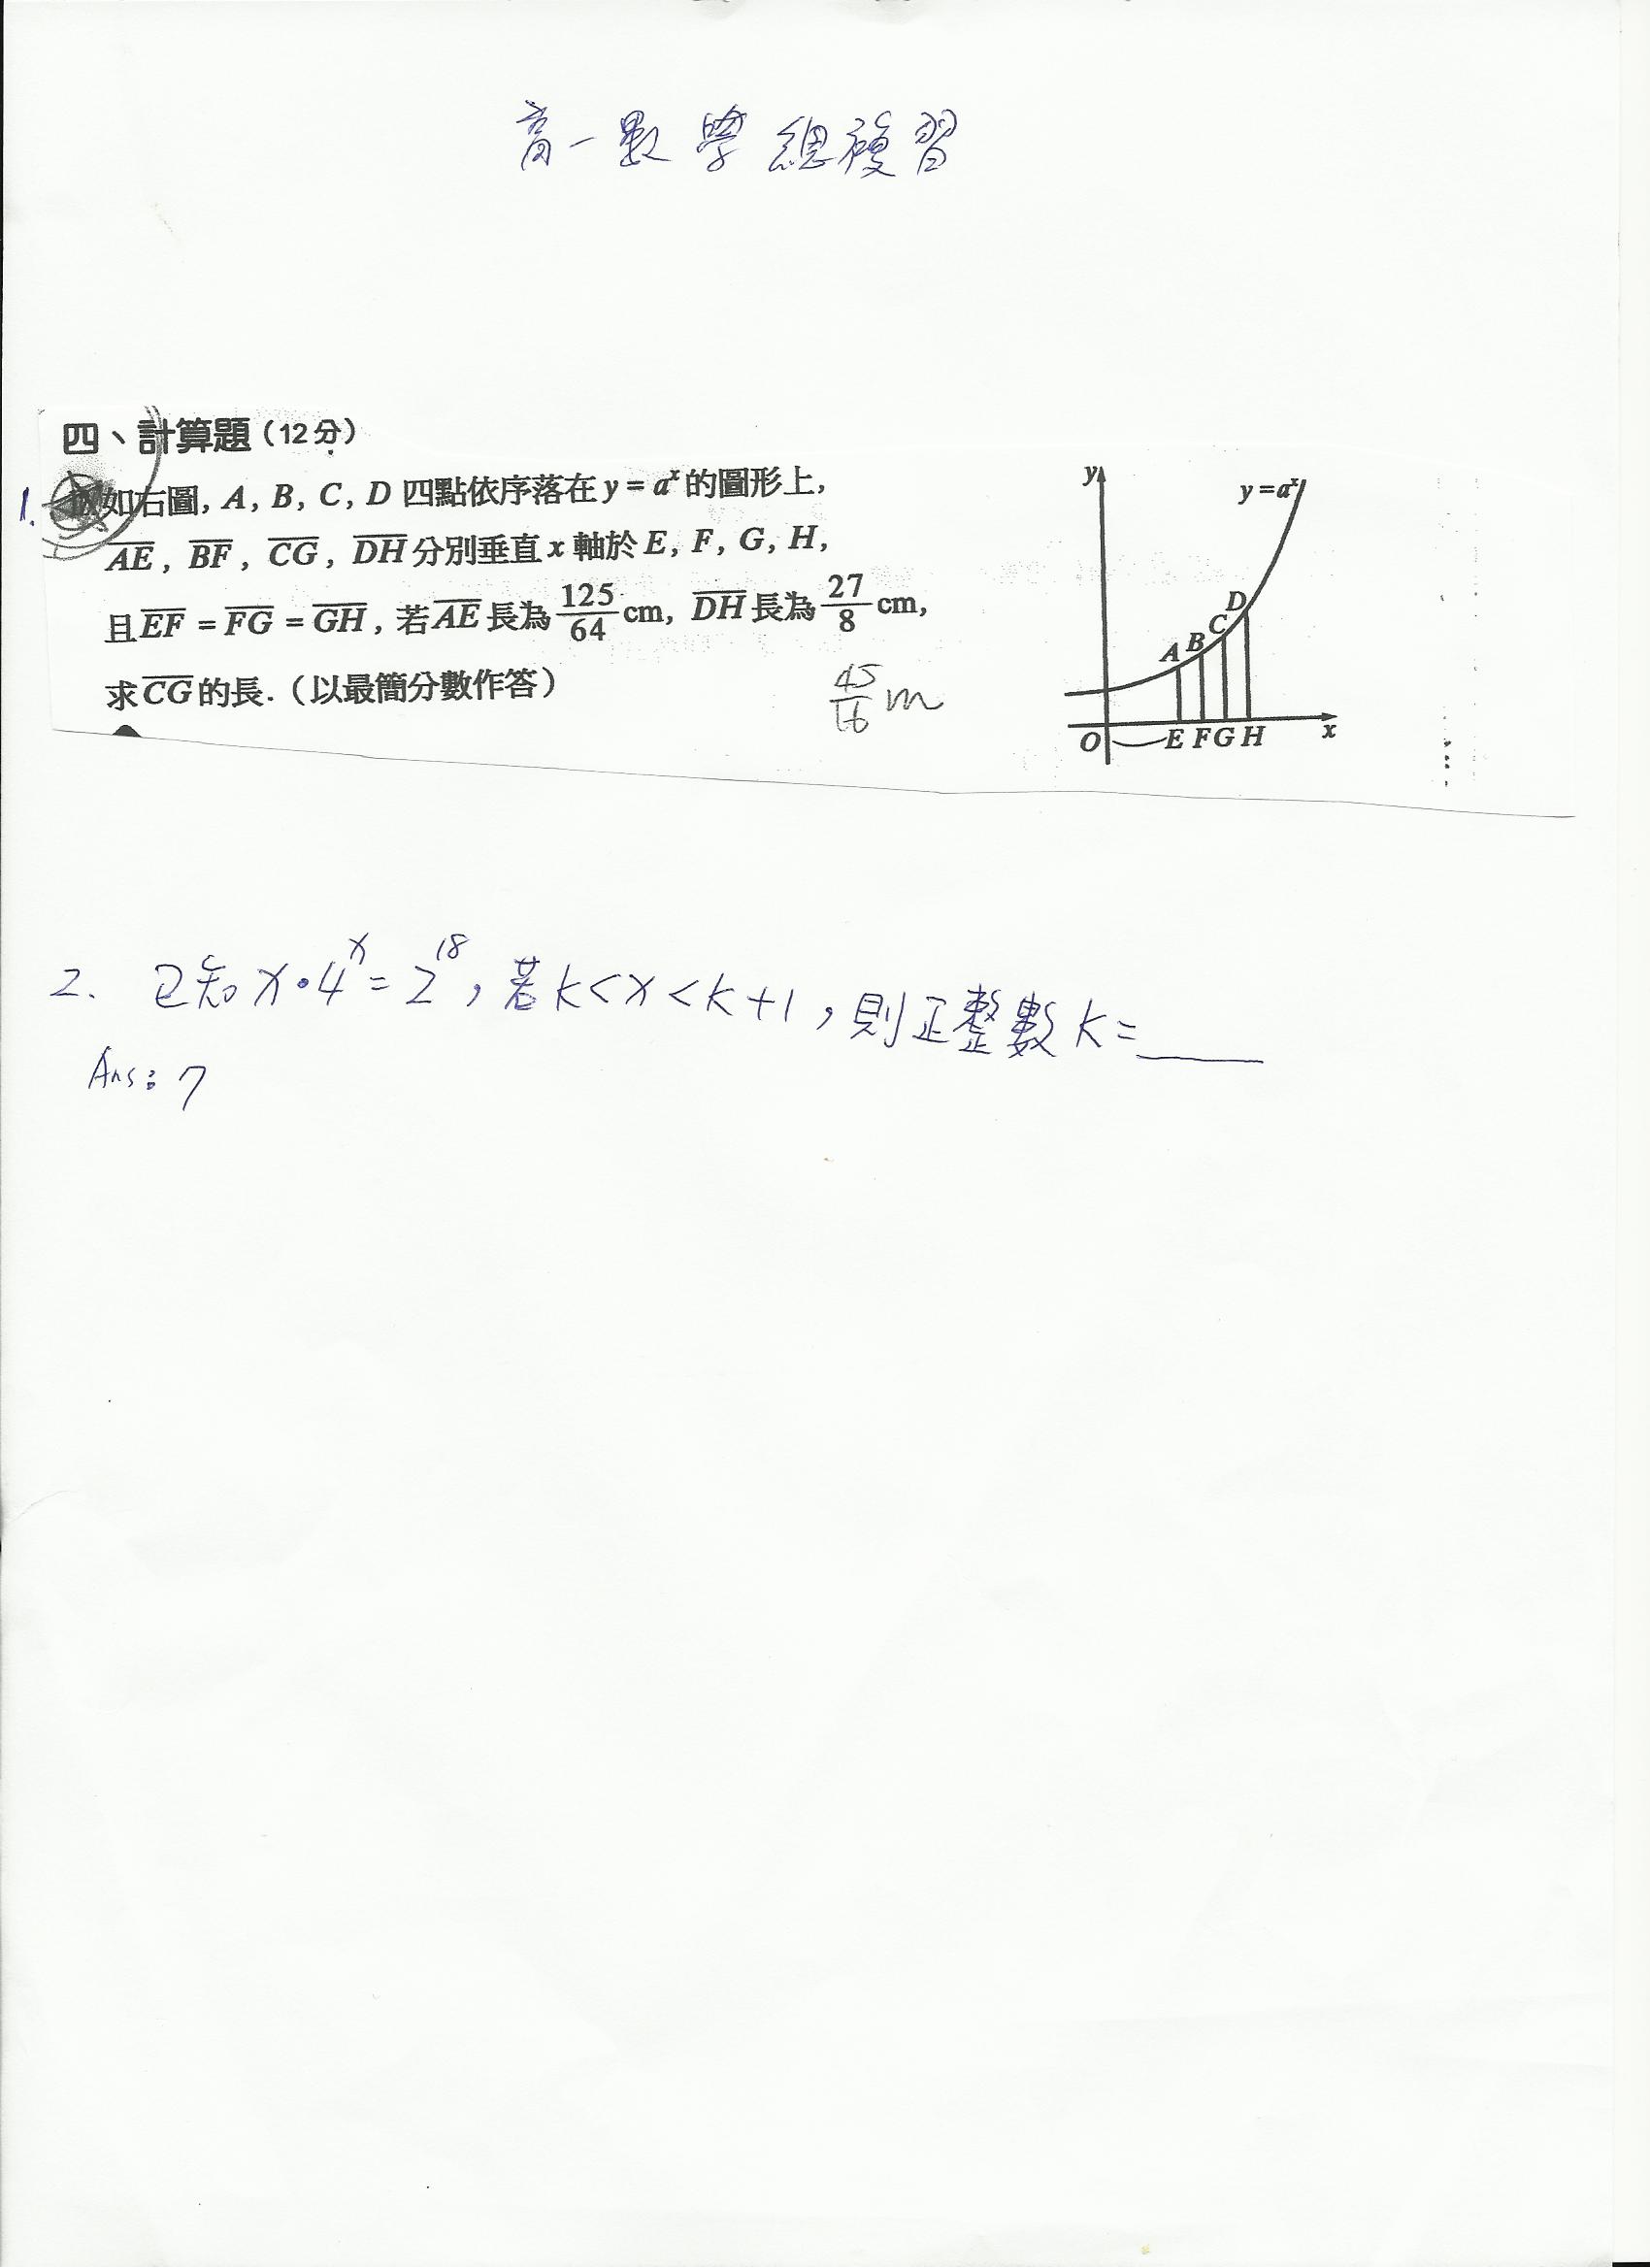 高一數學總複習
四、計算題(12分)
1. 如右圖, A, B, C, D 四點依序落在 y = aˣ 的圖形上,
AE, BF, CG, DH 分別垂直 x 軸於 E, F, G, H,
且 EF = FG = GH, 若 AE 長為 125/64 cm, DH 長為 27/8 cm,
求 CG 的長.(以最簡分數作答)
45/16 m
y
y = aˣ
A B C D
O E F G H x
2. 已知 x·4ˣ = 2¹⁸, 若 k < x < k+1, 則正整數 k = ____
Ans: 7